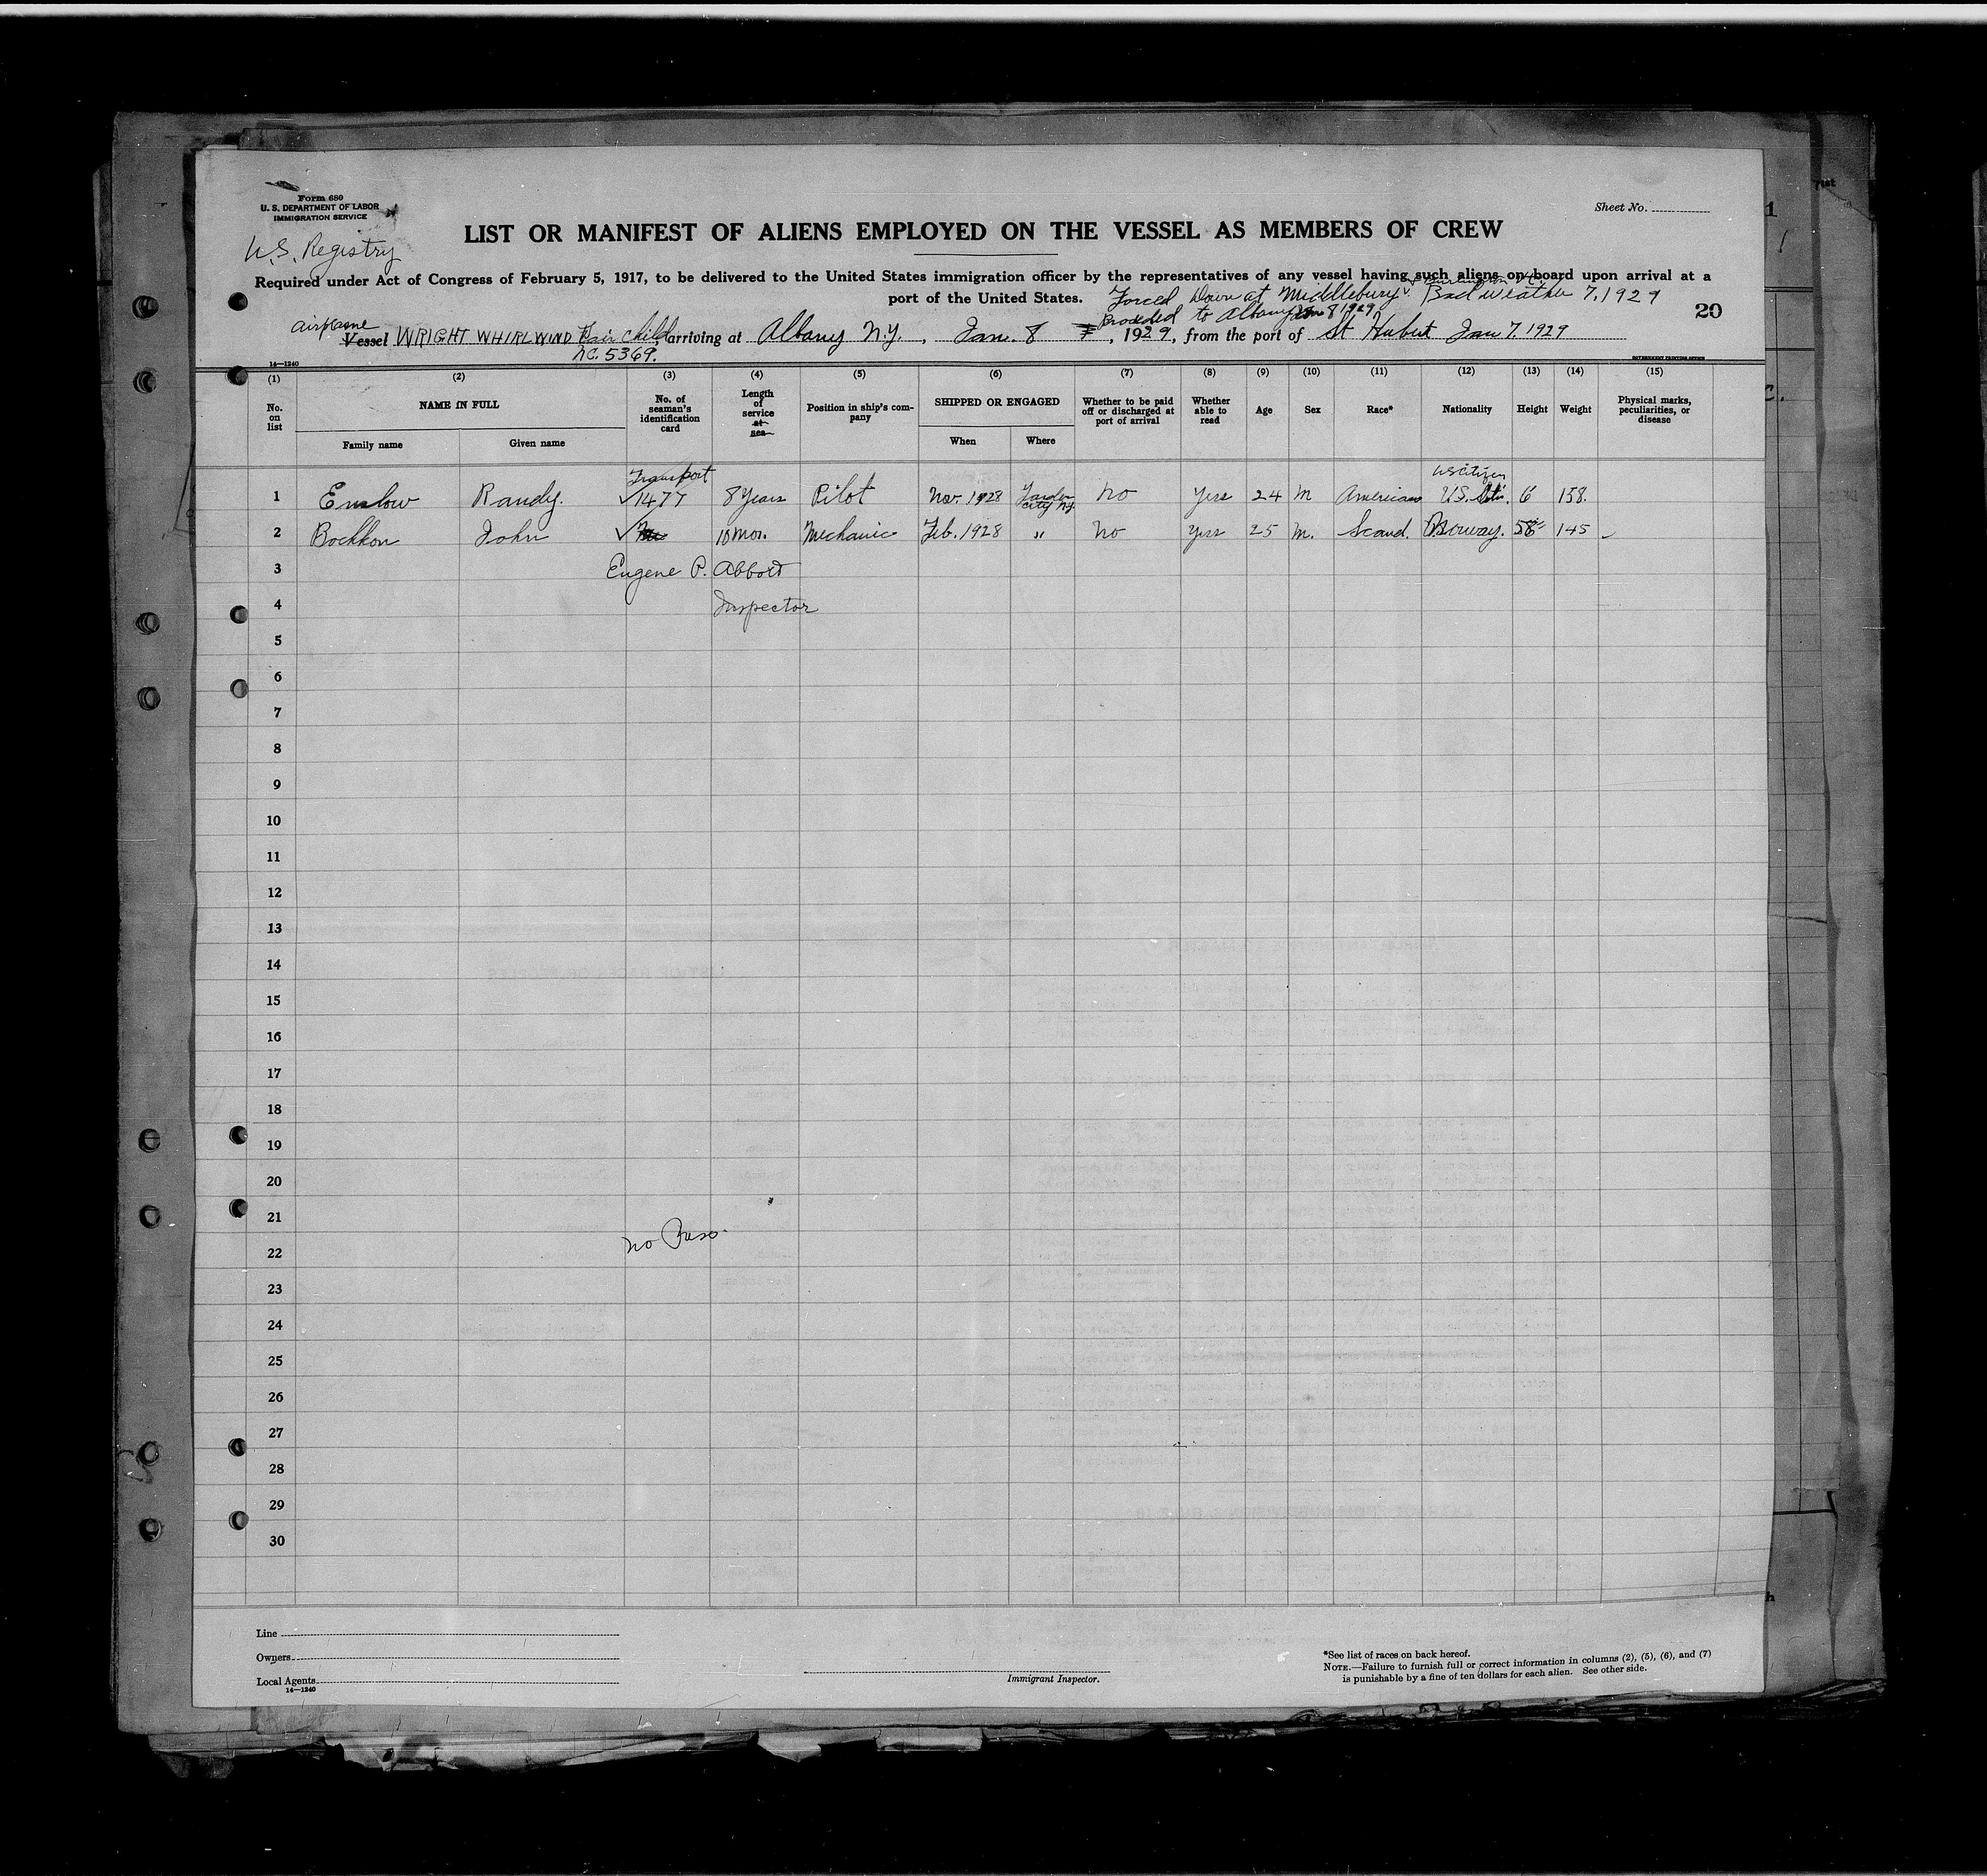 Form 680
U. S. DEPARTMENT OF LABOR
IMMIGRATION SERVICE
Sheet No.
U.S. Registry
LIST OR MANIFEST OF ALIENS EMPLOYED ON THE VESSEL AS MEMBERS OF CREW
Required under Act of Congress of February 5, 1917, to be delivered to the United States immigration officer by the representatives of any vessel having such aliens on board upon arrival at a
port of the United States.
Burlington Vt.
Forced Down at Middlebury Bad weather 7, 1929
to Albany Jan 8 1929
20
airplane
Vessel WRIGHT WHIRLWIND Fairchild arriving at Albany N.Y., Jan. 8, 1929, from the port of St Hubert Jan 7. 1929
NC. 5369.
14—1240
GOVERNMENT PRINTING OFFICE
(1) (2) (3) (4) (5) (6) (7) (8) (9) (10) (11) (12) (13) (14) (15)
No. on list
NAME IN FULL
Family name
Given name
No. of seaman's identification card
Length of service at sea
Position in ship's company
SHIPPED OR ENGAGED
When
Where
Whether to be paid off or discharged at port of arrival
Whether able to read
Age
Sex
Race*
Nationality
Height
Weight
Physical marks, peculiarities, or disease
Transport
US citizen
1 Enslow Randy. 1477 8 Years Pilot Nov. 1928 Garden City NY. No Yes 24 M American U.S. 6 158.
2 Bochkon John 10 mos. Mechanic Feb. 1928 " No Yes 25 M. Scand. Norway. 145
3 Eugene P. Abbott
4 Inspector
5
6
7
8
9
10
11
12
13
14
15
16
17
18
19
20
21
no Pass.
22
23
24
25
26
27
28
29
30
Line
Owners
Local Agents
14—1240
Immigrant Inspector.
*See list of races on back hereof.
NOTE.—Failure to furnish full or correct information in columns (2), (5), (6), and (7)
is punishable by a fine of ten dollars for each alien. See other side.